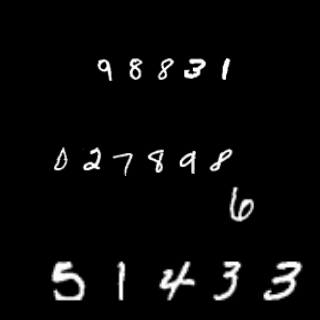 98831
027898
6
51433